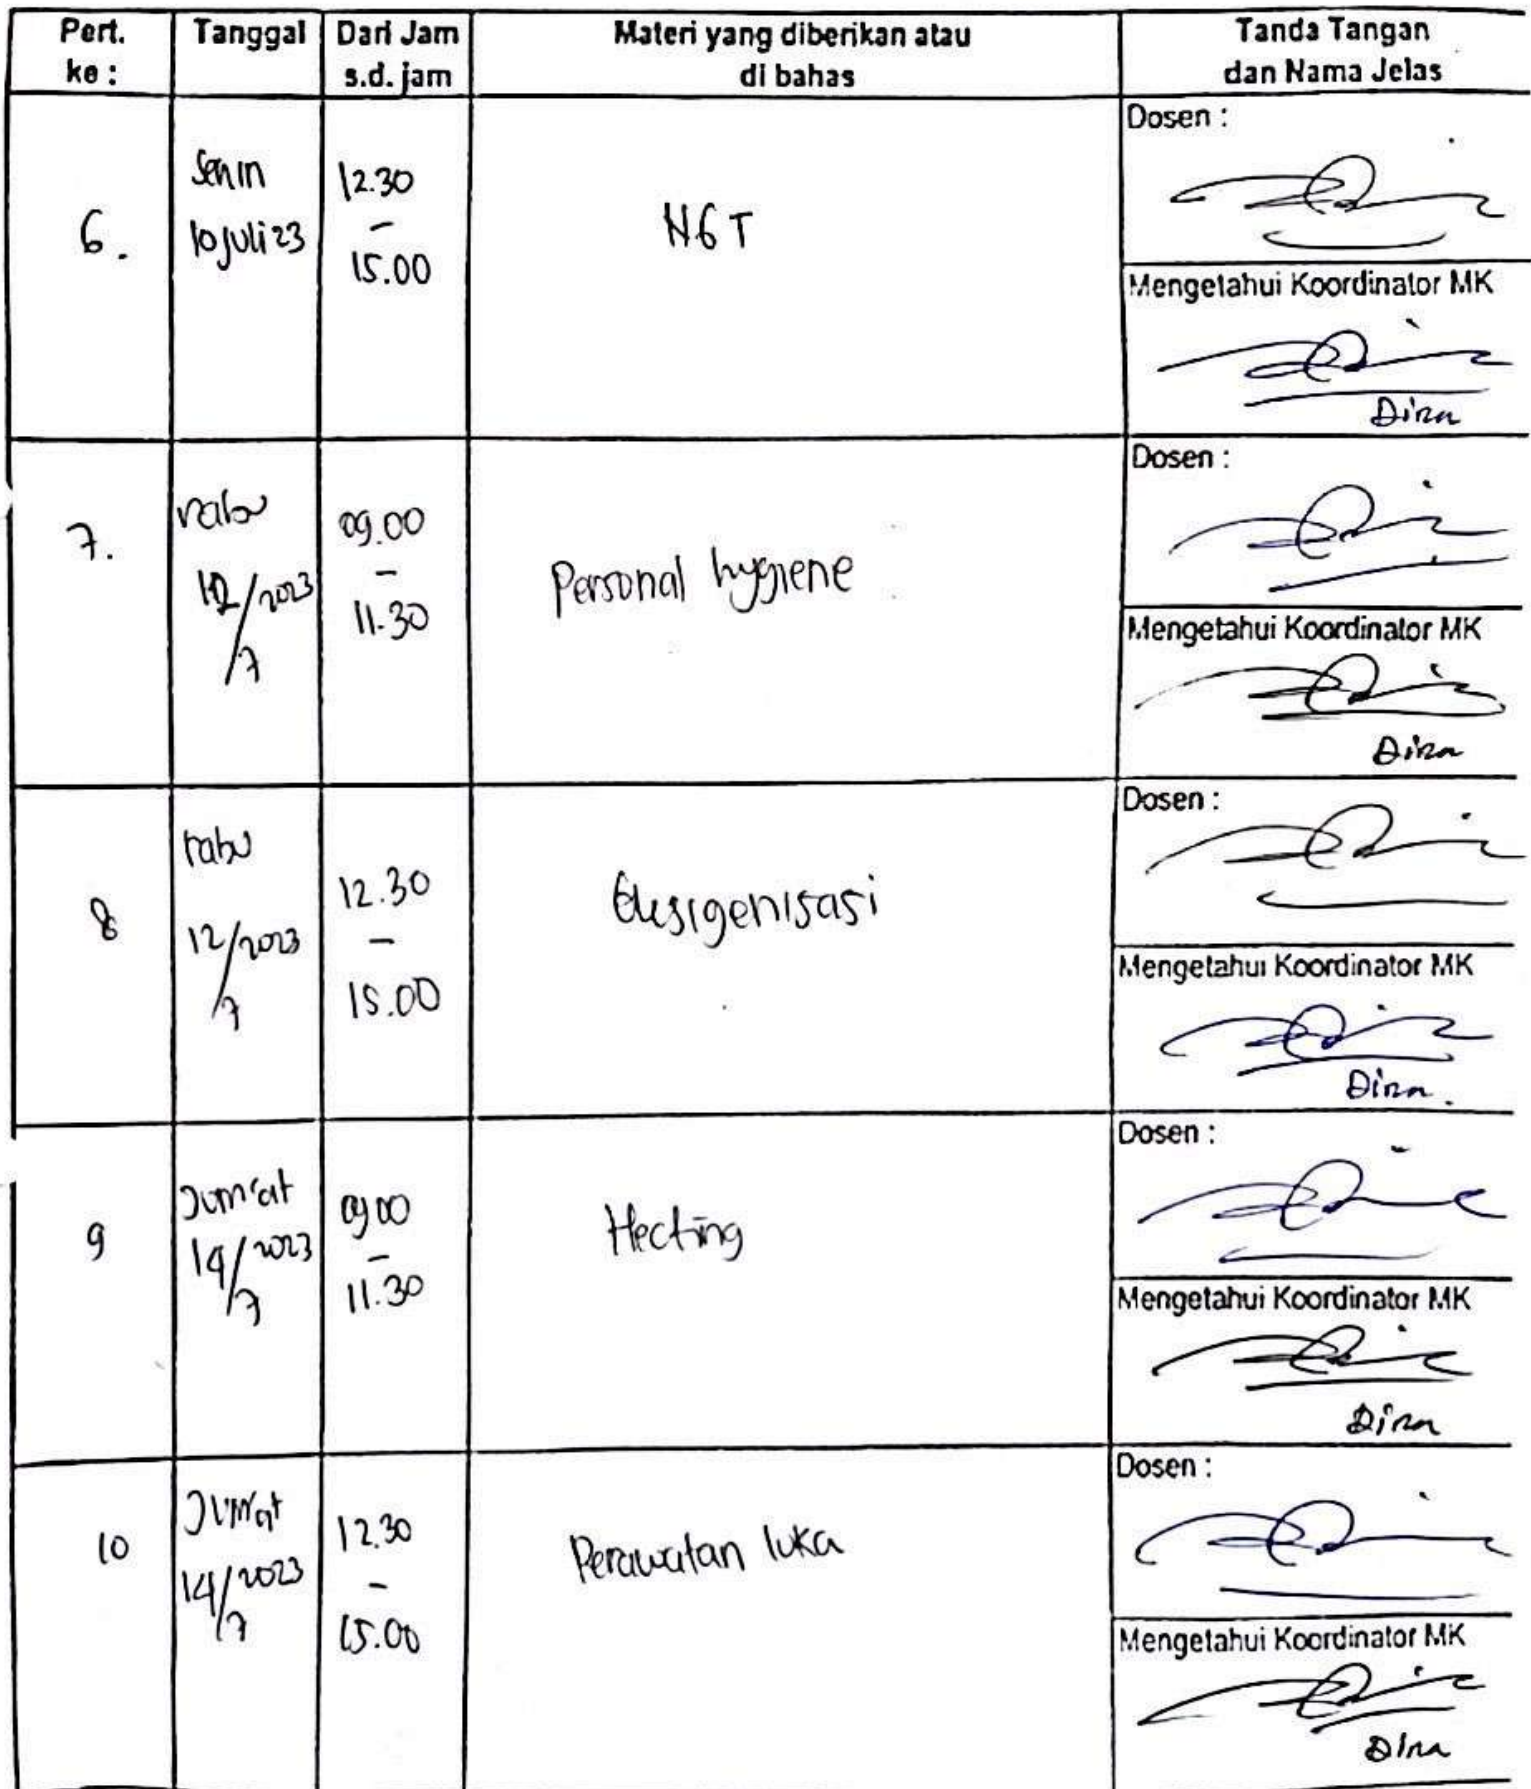 Pert. ke :
Tanggal
Dari Jam s.d. jam
Materi yang diberikan atau di bahas
Tanda Tangan dan Nama Jelas
6.
Senin
10 Juli 23
12.30
-
15.00
NGT
Dosen :
Mengetahui Koordinator MK
Dina
7.
rabu
12/2023
/7
09.00
-
11.30
Personal hygiene
Dosen :
Mengetahui Koordinator MK
Dina
8
rabu
12/2023
/7
12.30
-
15.00
Dosen :
Mengetahui Koordinator MK
Dina.
9
Jum'at
14/2023
/7
09.00
-
11.30
Hecting
Dosen :
Mengetahui Koordinator MK
Dina
10
Jum'at
14/2023
/7
12.30
-
15.00
Perawatan luka
Dosen :
Mengetahui Koordinator MK
Dina